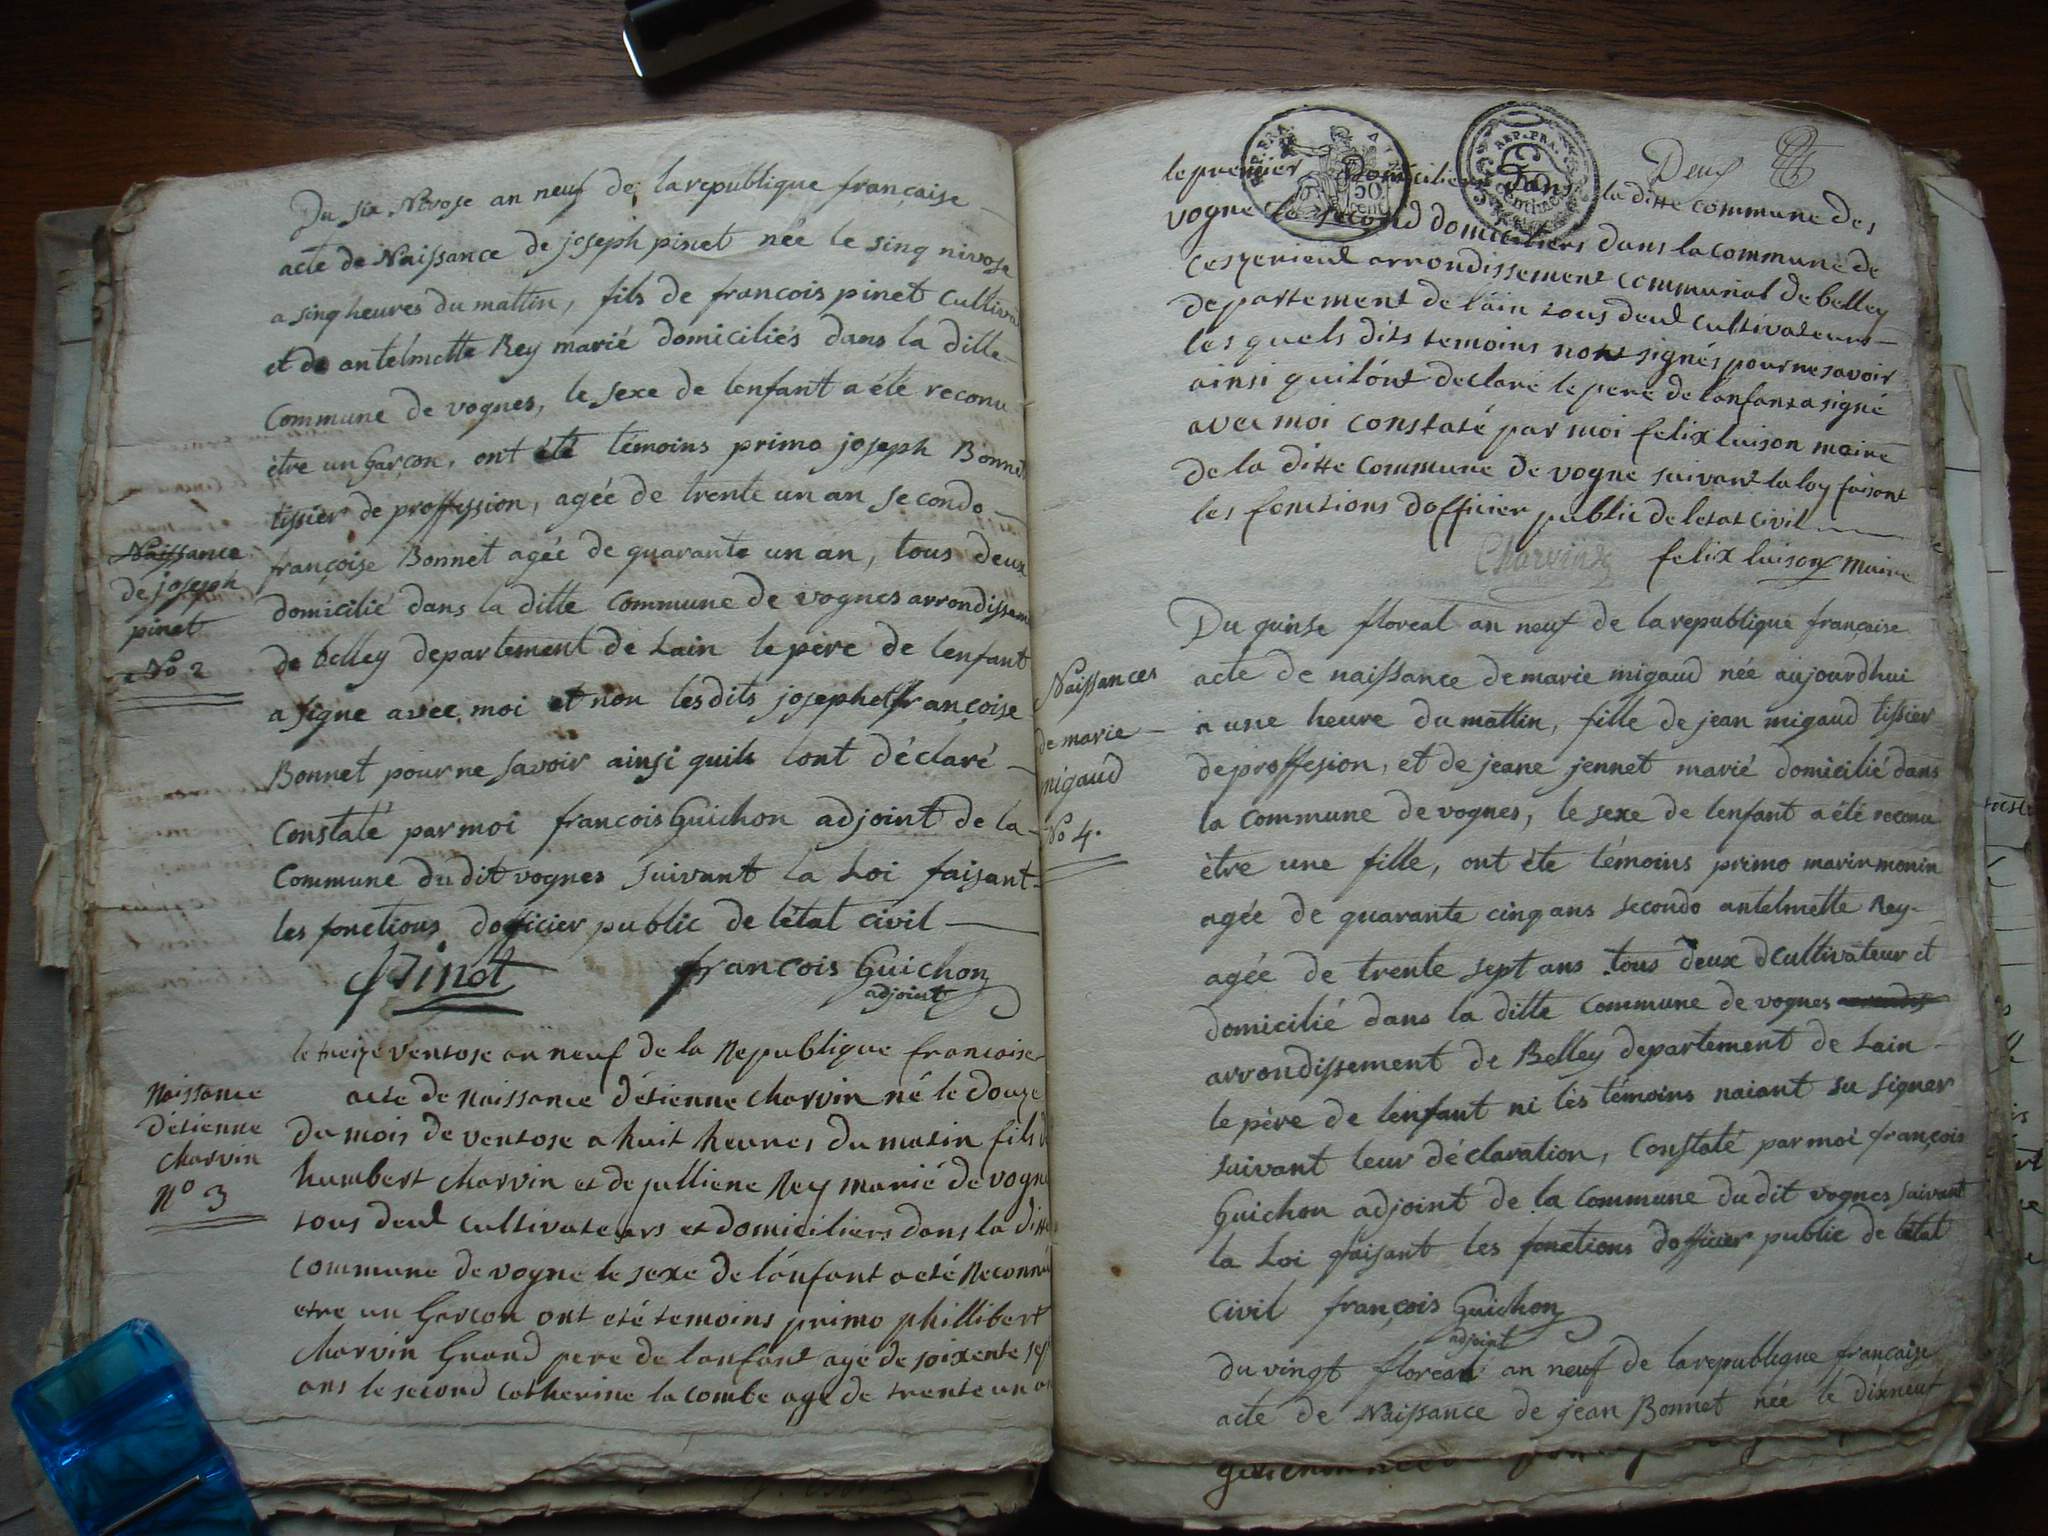 Du six Nivose an neuf de la republique française
acte de Naissance de joseph pinet née le sinq nivose
a sinq heures du mattin, fils de francois pinet Cultiva
et de antelmette Rey marié domiciliés dans la ditte
Commune de vognes, le sexe de lenfant a été reconu
être un Garçon, ont été témoins primo joseph Bonnet
tissier de proffession, agée de trente un an secondo
françoise Bonnet agée de quarante un an, tous deux
domicilié dans la ditte Commune de vognes arrondissem
de belley departement de Lain le père de lenfant
a signe avec moi et non lesdits joseph et françoise
Bonnet pour ne savoir ainsi quils lont déclaré
Constaté par moi francois Guichon adjoint de la
Commune dudit vognes suivant la Loi faisant
les fonctions dofficier public de létat civil
Pinet francois Guichon
adjoint
Naissance
de joseph
pinet
No 2
le treize ventose an neuf de la Republique francaise
acte de Naissance détienne charvin né le douze
du mois de ventose a huit heures du matin fils d
humbert charvin et de julliene Rey marié de vogne
tous deux cultivateurs et domiciliers dans la ditte
commune de vogne le sexe de lánfant a eté Reconnu
etre un Garcon ont eté temoins primo phillibert
charvin Grand pere de lanfant agé de soixente sept
ans le second Catherine la combe agé de trente un an
Naissance
détienne
charvin
No 3
Deux
REP. FRA.
50 cent
REP. FRA.
50
Centimes
le premier domiciliers dans la ditte commune des
vogne le second domiciliers dans la commune de
arrondissement communal de belley
departement de láin tous deux cultivateurs
les quels dits temoins nont signés pour ne savoir
ainsi quilónt declaré le pere de lánfant a signé
avec moi constaté par moi felix luison maire
de la ditte commune de vogne suivant la loy faisant
les fonctions dofficier public de letat civil
Charvin felix luison maire
Du quinse floreal an neuf de la republique française
acte de naissance de marie migaud née aujourdhui
a une heure du mattin, fille de jean migaud tissier
de proffesion, et de jeane jennet marié domicilié dans
la Commune de vognes, le sexe de lenfant a été reconu
être une fille, ont éte témoins primo marin monin
agée de quarante cinq ans secondo antelmette Rey
agée de trente sept ans tous deux Cultivateur et
domicilié dans la ditte Commune de vognes
arrondissement de Belley departement de Lain
le père de lenfant ni les témoins naiant su signer
suivant leur déclaration, Constaté par moi françois
Guichon adjoint de la Commune dudit vognes suivant
la Loi faisant les fonctions dofficier public de létat
Civil françois Guichon
adjoint
Naissances
de marie
migaud
No 4.
du vingt floreal an neuf de la republique française
acte de Naissance de jean Bonnet née le dixneuf